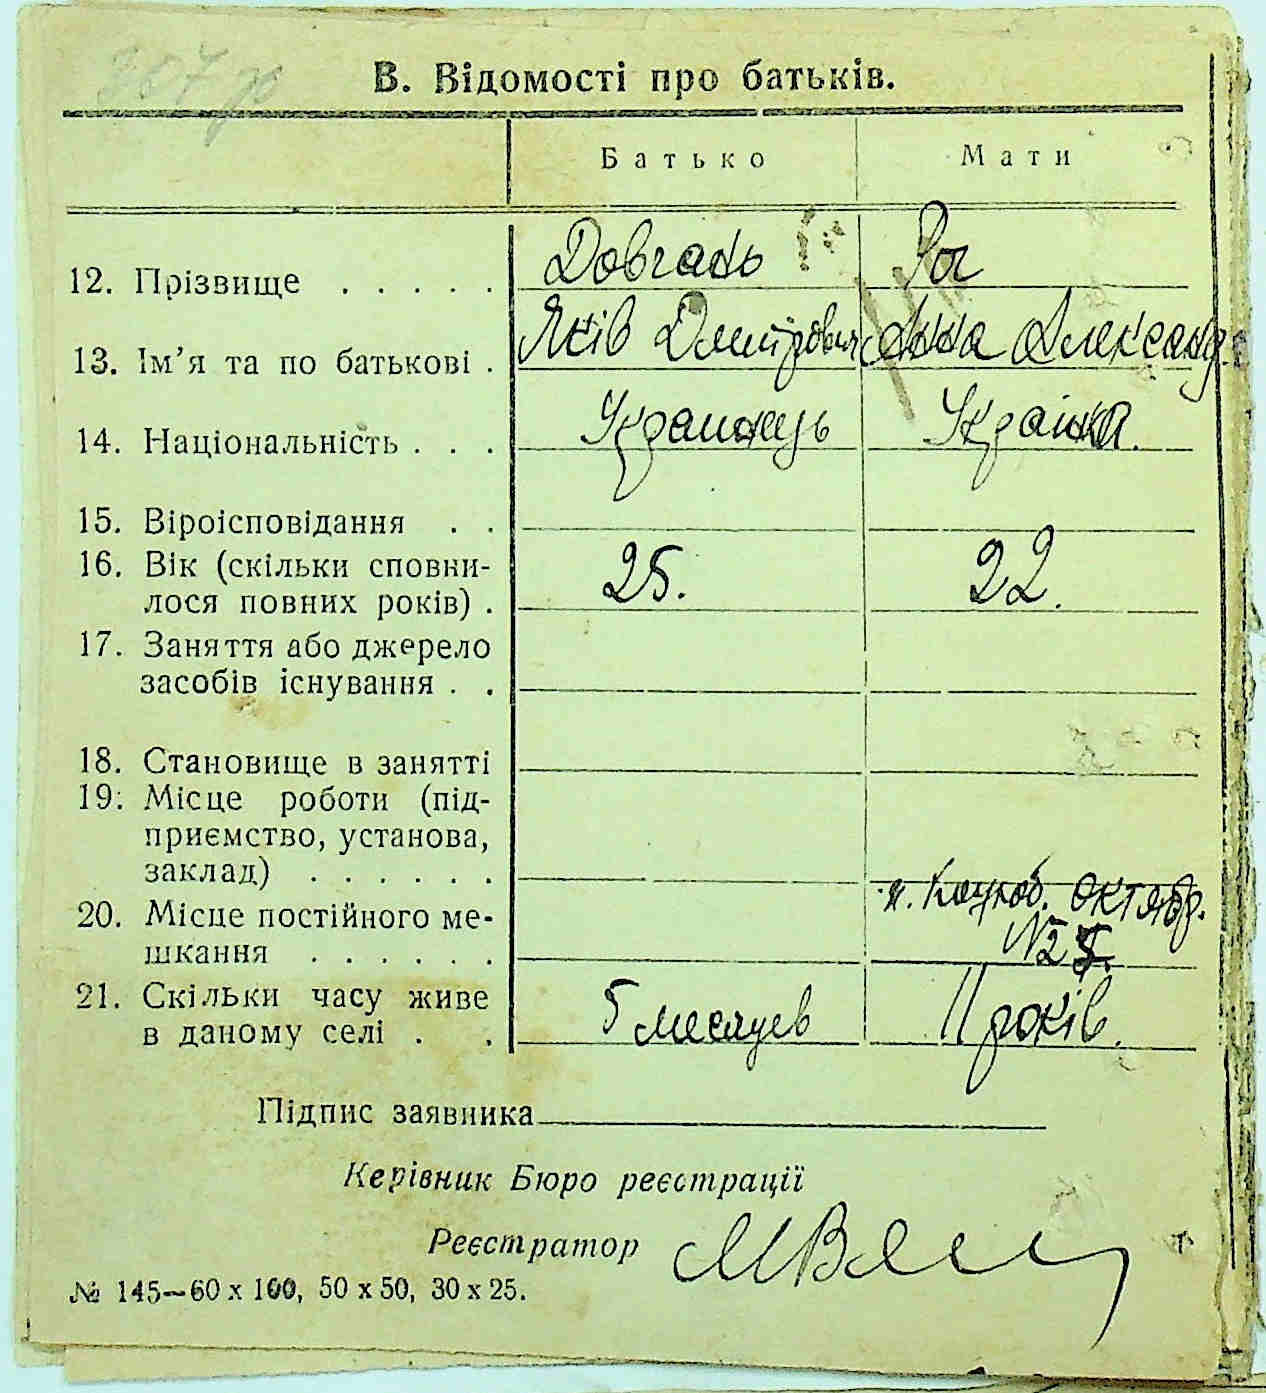 307 р
В. Відомості про батьків.
Батько Мати
12. Прізвище . . . . . Довгань Рог
13. Ім’я та по батькові . Яків Дмитрович Анна Александ.
14. Національність . . . Українець Українка.
15. Віроісповідання . .
16. Вік (скільки сповни-
лося повних років) . 25. 22.
17. Заняття або джерело
засобів існування . .
18. Становище в занятті
19. Місце роботи (під-
приємство, установа,
заклад) . . . . . .
20. Місце постійного ме- Октябр.
шкання . . . . . . №
21. Скільки часу живе
в даному селі . . 5 месяцев 11 років.
Підпис заявника
Керівник Бюро реєстрації
Реєстратор
№ 145—60 х 100, 50 х 50, 30 х 25.